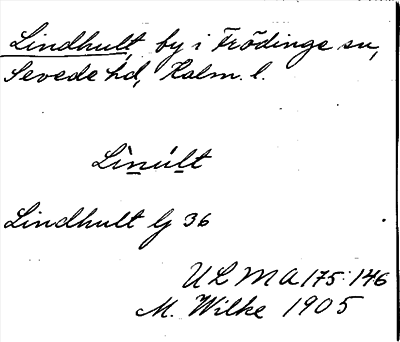 Lindhult, by i Frödinge sn,
Sevede hd, Kalm. l.
Lìnúlt
Lindhult lj 36
ULMA 175:146
M. Wilke 1905